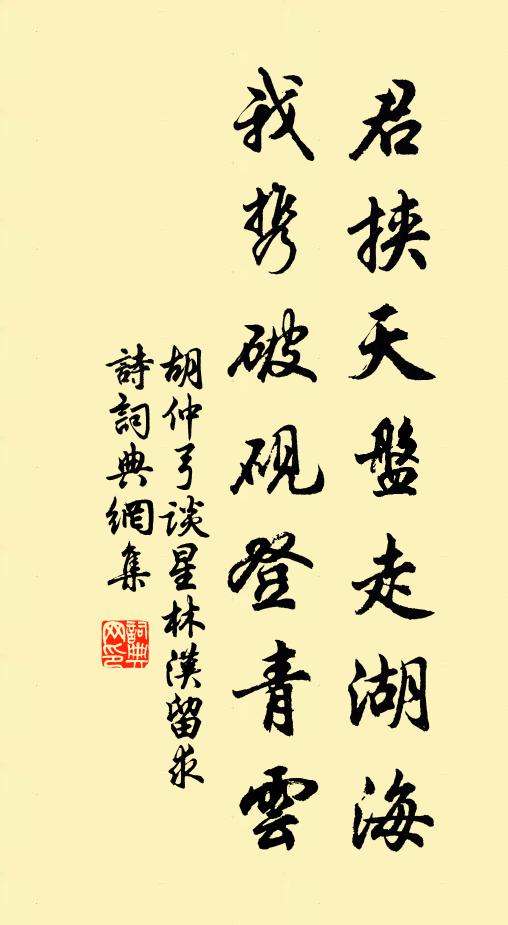 君挾天盤走湖海
我携破硯登青雲
胡仲弓谈星林漢留求
詩詞典網集
詞典网印